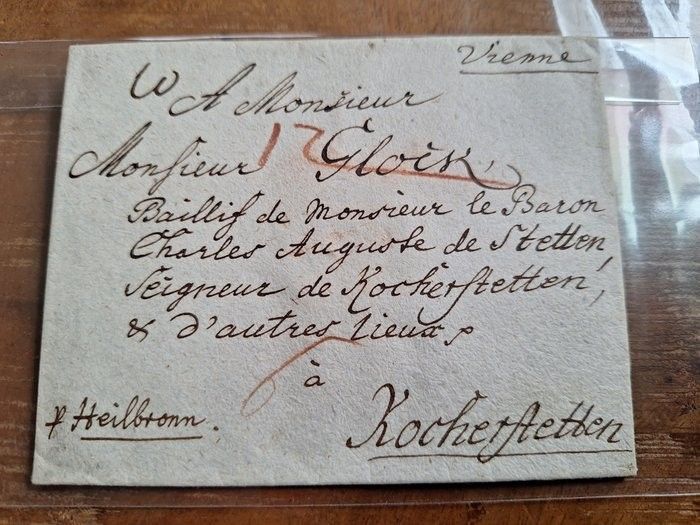 Vienne
A Monsieur
Monsieur Glock,
Baillif de Monsieur le Baron
Charles Auguste de Stetten,
Seigneur de Kocherstetten,
& d'autres lieux.
à
Kocherstetten
p Heilbronn.
12